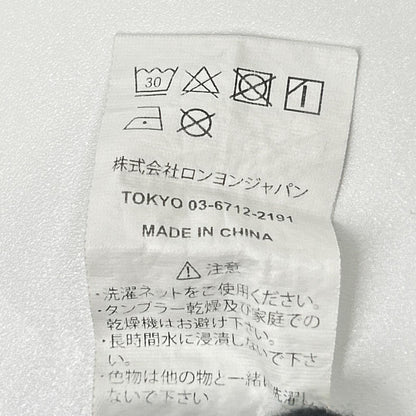 30
株式会社ロンヨンジャパン
TOKYO 03-6712-2191
MADE IN CHINA
⚠ 注意
・洗濯ネットをご使用ください。
・タンブラー乾燥及び家庭での
乾燥機はお避け下さい。
・長時間水に浸漬しないで下さ
い。
・色物は他の物と一緒に洗濯し
ないで下さい